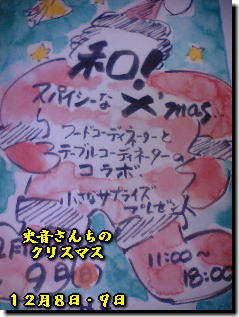 和!
スパイシーな X'mas
フードコーディネーターと
テーブルコーディネーターの
コラボ
小さなサプライズ
プレゼント
9日(日)
11:00〜
18:00
史音さんちの
クリスマス
12月8日・9日